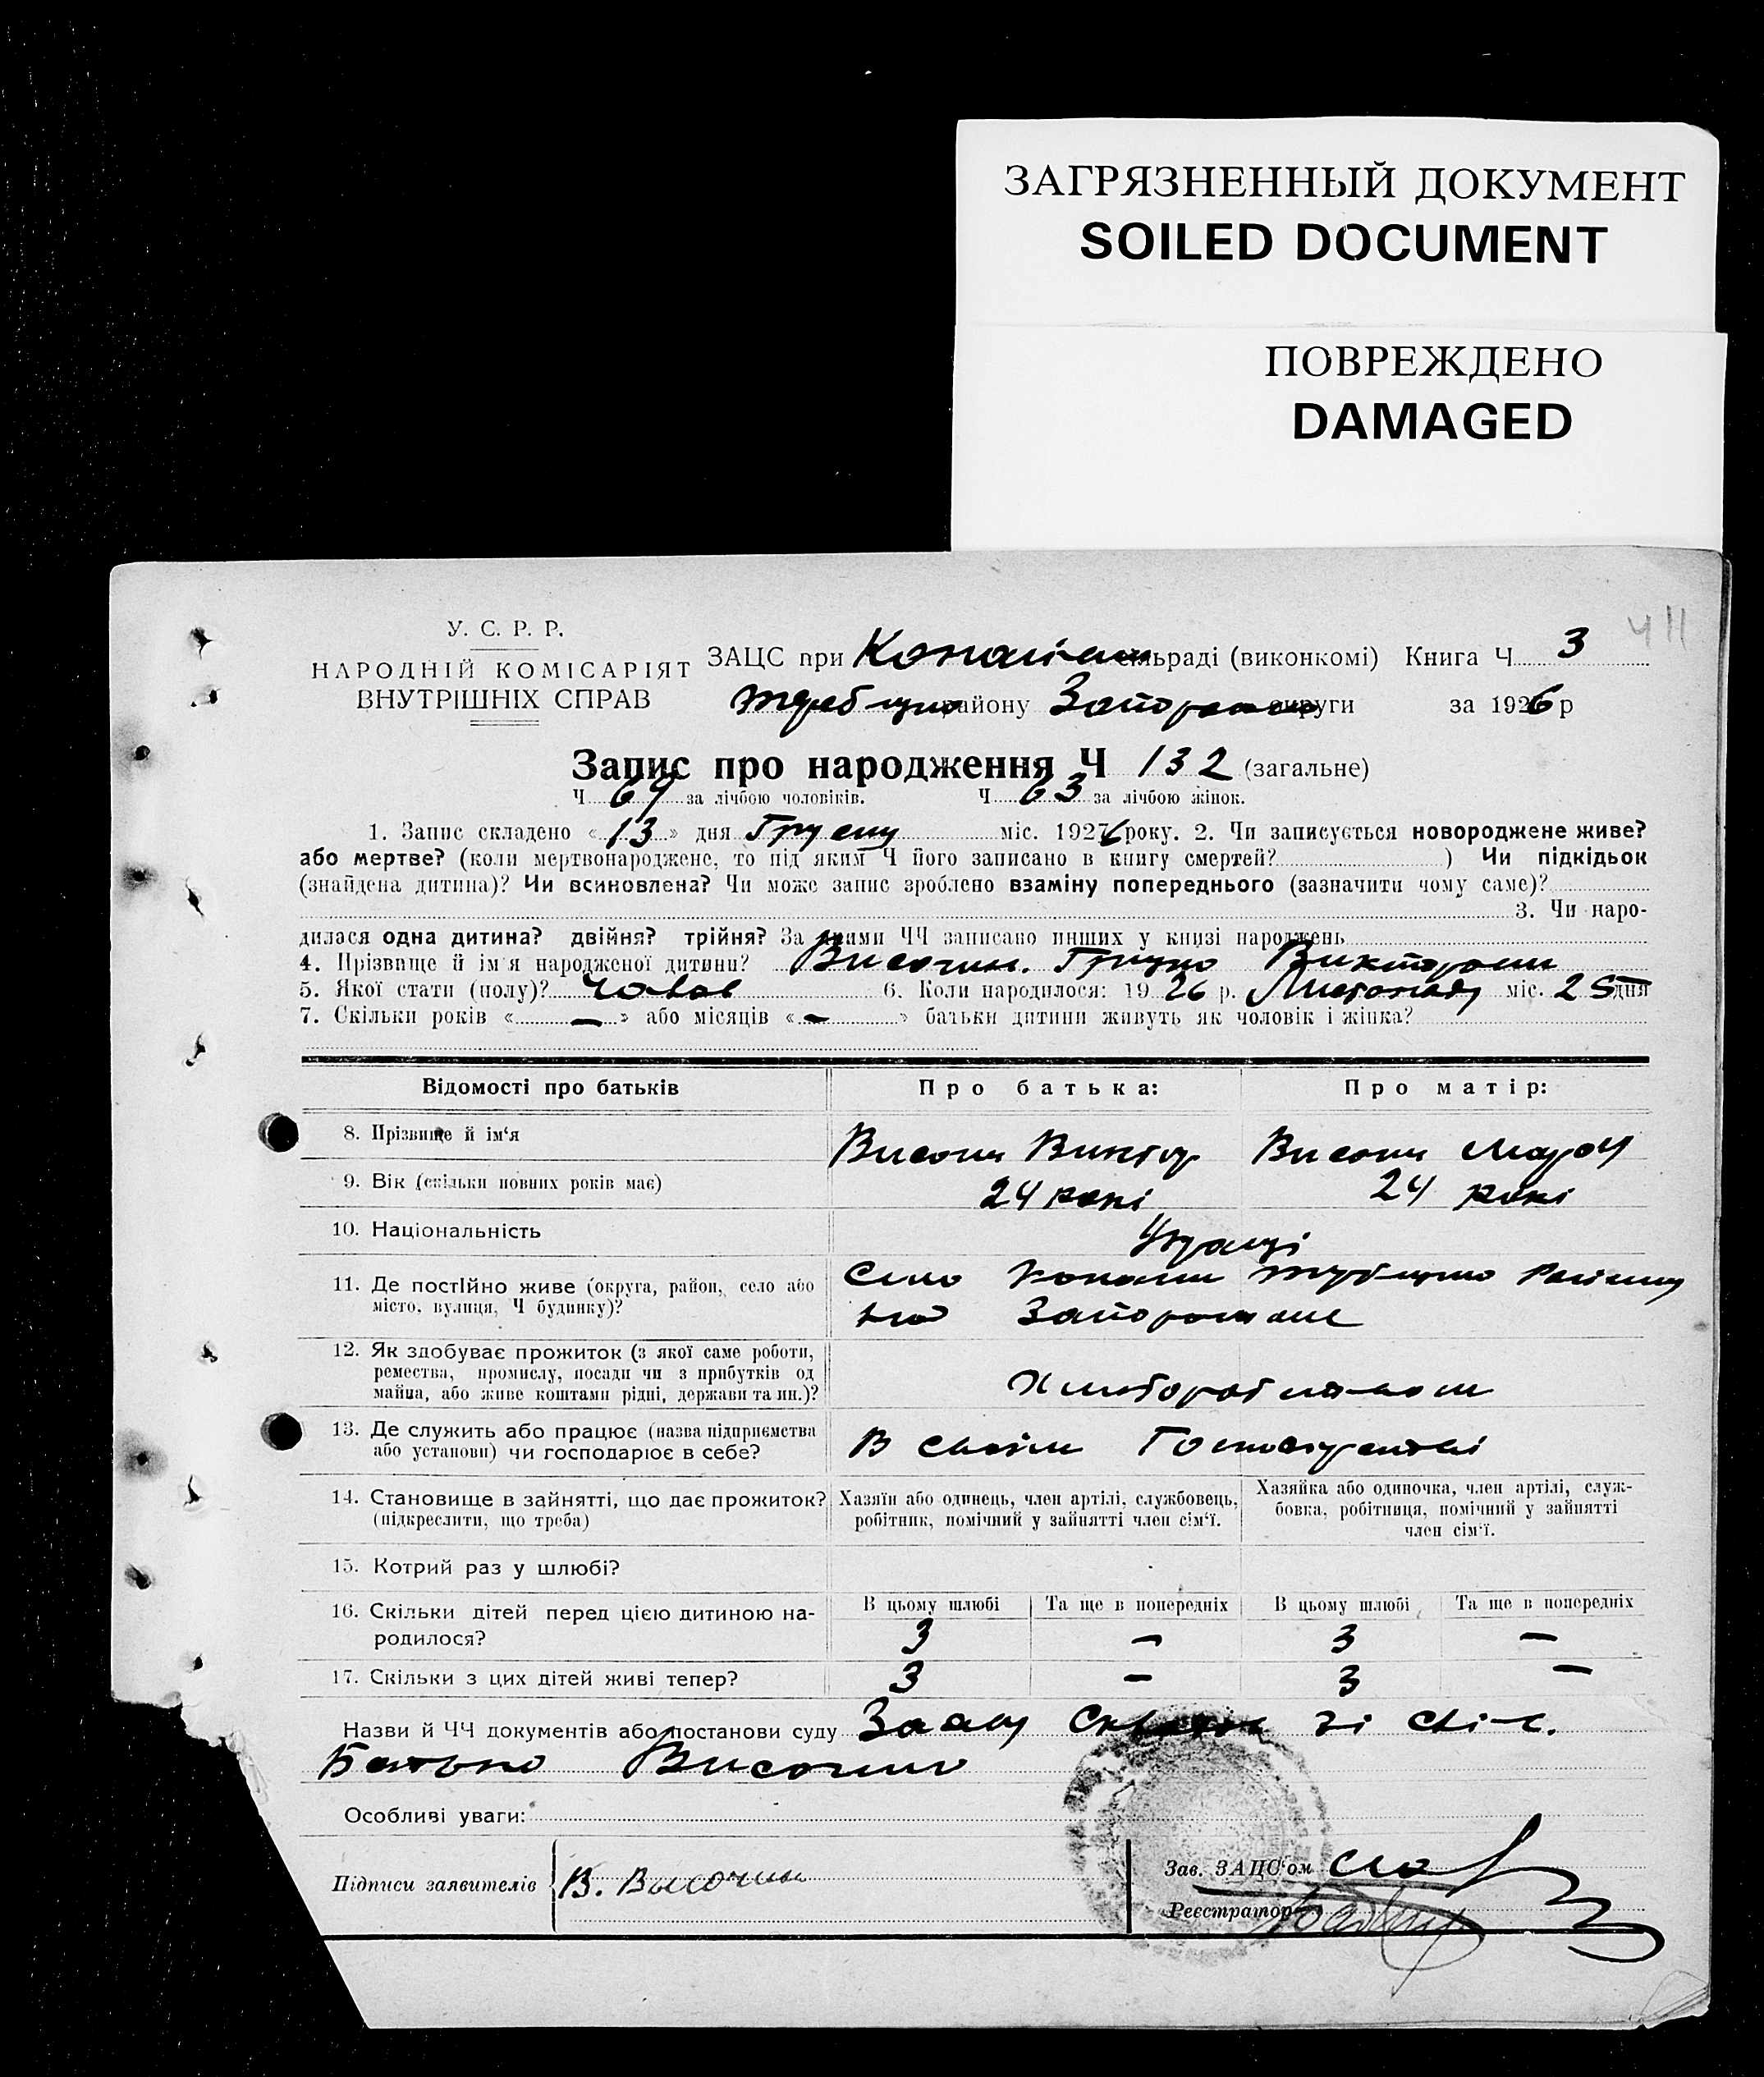 ЗАГРЯЗНЕННЫЙ ДОКУМЕНТ
SOILED DOCUMENT
ПОВРЕЖДЕНО
DAMAGED
411
У. С. Р. Р.
НАРОДНІЙ КОМІСАРІЯТ
ВНУТРІШНІХ СПРАВ
ЗАЦС при сільраді (виконкомі) Книга Ч 3
району округи за 1926 р
Запис про народження Ч 132 (загальне)
Ч 69 за лічбою чоловіків. Ч 63 за лічбою жінок.
1. Запис складено «13» дня Грудня міс. 1926 року. 2. Чи записується новороджене живе?
або мертве? (коли мертвонароджене, то під яким Ч його записано в книгу смертей? ) Чи підкідьок
(знайдена дитина)? Чи всиновлена? Чи може запис зроблено взаміну попереднього (зазначити чому саме)?
3. Чи наро-
дилася одна дитина? двійня? трійня? За якими ЧЧ записано инших у книзі народжень
4. Прізвище й ім'я народженої дитини? Височин. Грицко
5. Якої стати (полу)? Чолов 6. Коли народилося: 1926 р. Листопаду міс. 25 дня
7. Скільки років «—» або місяців «-» батьки дитини живуть як чоловік і жінка?
Відомості про батьків
Про батька:
Про матір:
8. Прізвище й ім'я Височин Виктор Височин
9. Вік (скільки повних років має) 24 рокі 24 рокі
10. Національність Украці
11. Де постійно живе (округа, район, село або Село
місто, вулиця, Ч будинку)?
12. Як здобуває прожиток (з якої саме роботи,
ремества, промислу, посади чи з прибутків од
майна, або живе коштами рідні, держави та ин.)?
13. Де служить або працює (назва підприємства В своїм Господарстві
або установи) чи господарює в себе?
14. Становище в зайнятті, що дає прожиток? (підкреслити, що треба)
Хазяїн або одинець, член артілі, службовець,
робітник, помічний у зайнятті член сім'ї.
Хазяйка або одиночка, член артілі, служ-
бовка, робітниця, помічний у зайнятті
член сім'ї.
15. Котрий раз у шлюбі?
В цьому шлюбі Та ще в попередніх В цьому шлюбі Та ще в попередніх
16. Скільки дітей перед цією дитиною на-
родилося? 3 — 3 —
17. Скільки з цих дітей живі тепер? 3 — 3 —
Назви й ЧЧ документів або постанови суду зі слів.
Батько Височин
Особливі уваги:
Підписи заявителів В. Высочин
Зав. ЗАЦС'ом
Реєстратор